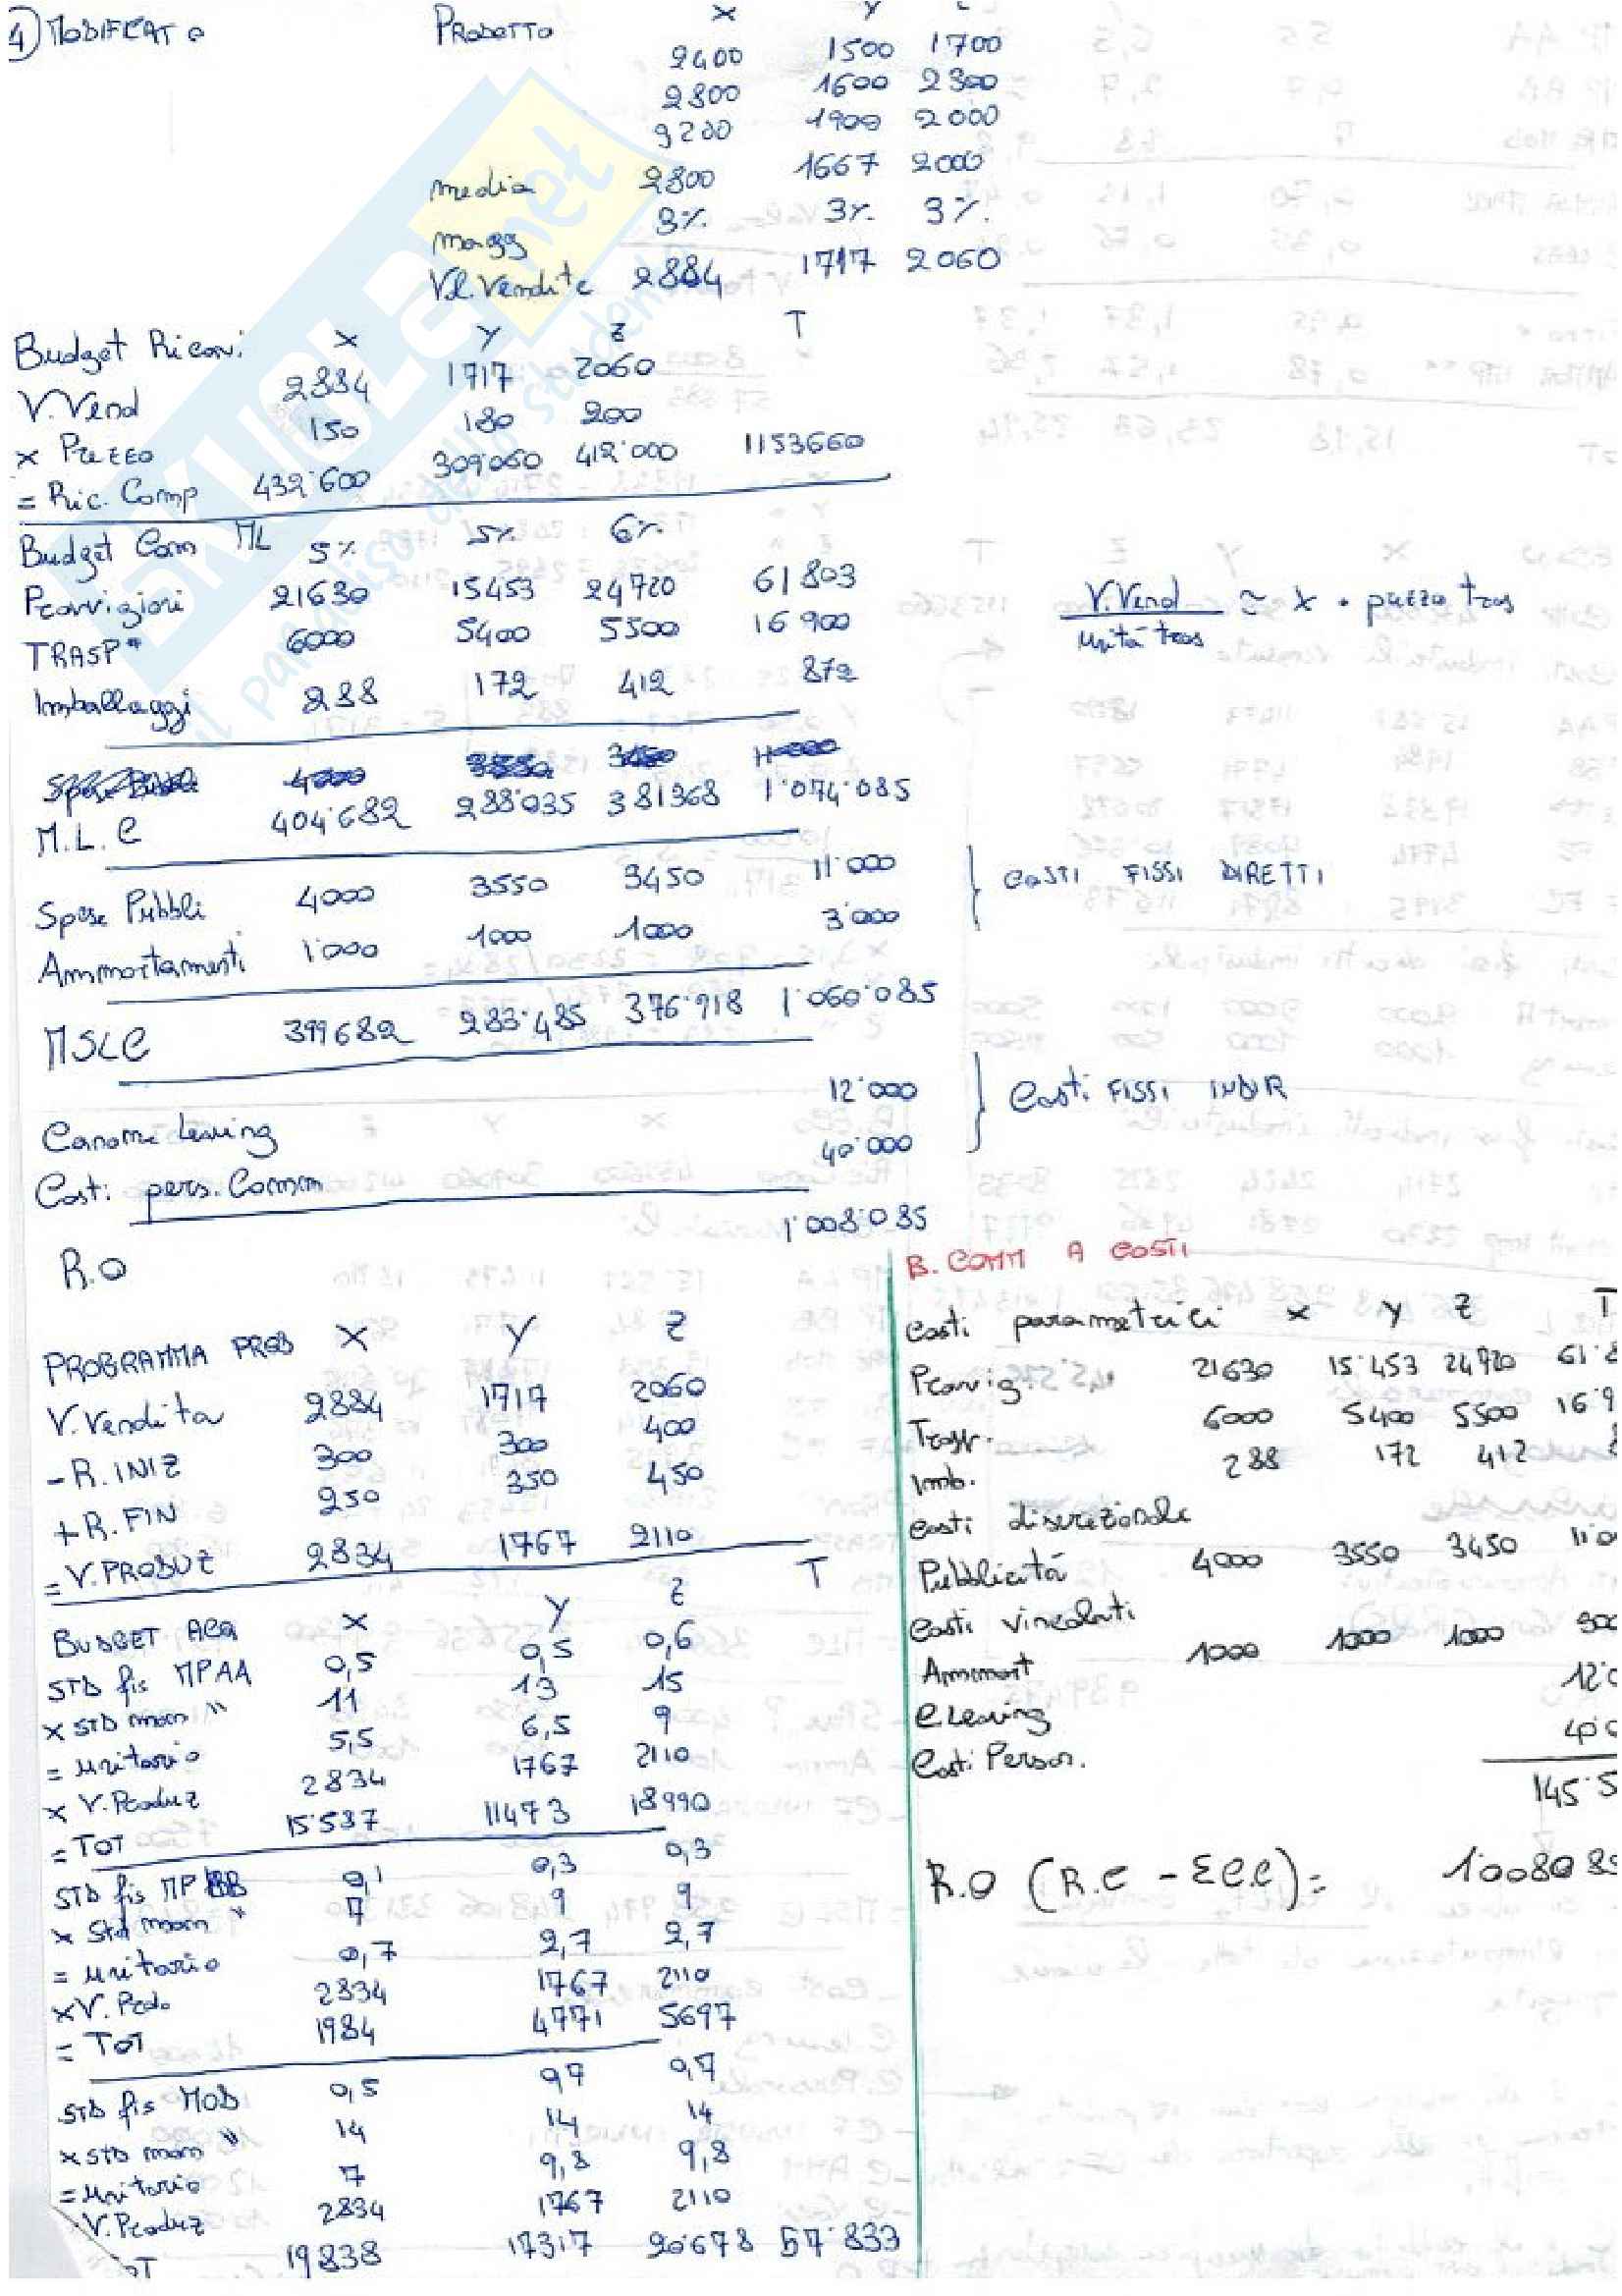 4) MODIFICATO PRODOTTO X Y Z
2400 1500 1700
2800 1600 2300
3200 1900 2000
media 2800 1667 2000
magg 3% 3% 3%
Vl. Vendite 2884 1717 2060
Budget Ricavi X Y Z T
V. Vend 2884 1717 2060
x Prezzo 150 180 200
= Ric. Comp 432'600 309'060 412'000 1153660
Budget Com ML 5% 5% 6%
Provvigioni 21630 15453 24720 61803
TRASP* 6000 5400 5500 16900
Imballaggi 288 172 412 872
V. Vend / unità tras ≃ X • prezzo tras
M.L.C 404'682 288'035 381368 1'074'085
Spese Pubbli 4000 3550 3450 11'000
Ammortamenti 1'000 1000 1000 3'000
} COSTI FISSI DIRETTI
MSLC 399682 283'485 376'918 1'060'085
Canone Leasing 12'000
Costi pers. Comm 40'000
} Costi FISSI INDIR
R.O 1'008'085
PROGRAMMA PROD X Y Z
V. Vendita 2884 1717 2060
- R. INIZ 300 300 400
+ R. FIN 250 350 450
= V. PRODUZ 2834 1767 2110
BUDGET ACQ X Y Z T
STD fis MPAA 0,5 0,5 0,6
x STD mon " 11 13 15
= unitario 5,5 6,5 9
x V. Produz 2834 1767 2110
= TOT 15'587 11473 18990
STD fis MPBB 0,1 0,3 0,3
x Std mon " 7 9 9
= unitario 0,7 2,7 2,7
x V. Prod. 2834 1767 2110
= TOT 1984 4771 5697
STD fis MOD 0,5 0,7 0,7
x STD mon " 14 14 14
= unitario 7 9,8 9,8
V. Produz 2834 1767 2110
TOT 19838 17317 20'678 57'833
B. COMM A COSTI
Costi parametrici X Y Z T
Provvig. 21630 15'453 24720 61'8
Trasp. 6000 5400 5500 16'9
Imb. 288 172 412 8
Costi discrezionale
Pubblicità 4000 3550 3450 11'0
Costi vincolati
Ammort 1000 1000 1000 300
C Leasing 12'0
Costi Person. 40'0
145'5
R.O (R.C - ΣC.C) = 100808
SKUOLA.net
il paradiso dello studente